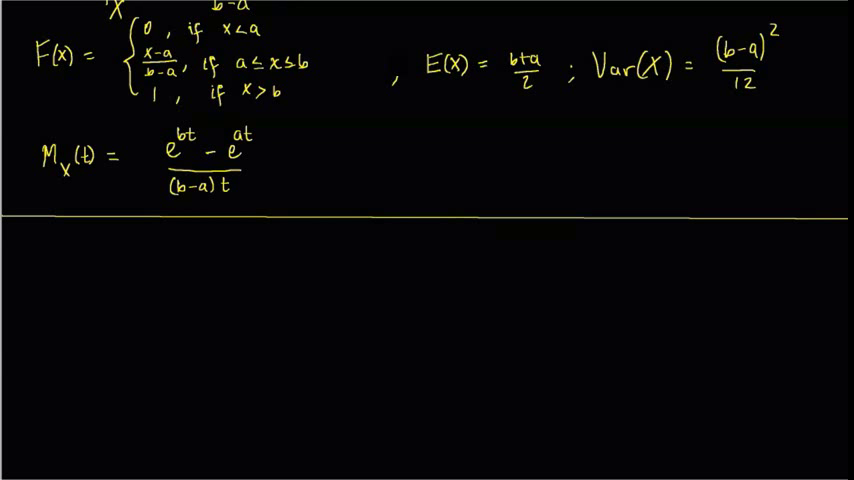 X b-a
F(x) = { 0 , if x<a
x-a/b-a , if a≤x≤b
1 , if x>b
, E(X) = b+a/2 ; Var(X) = (b-a)²/12
M_X(t) = e^bt - e^at / (b-a)t